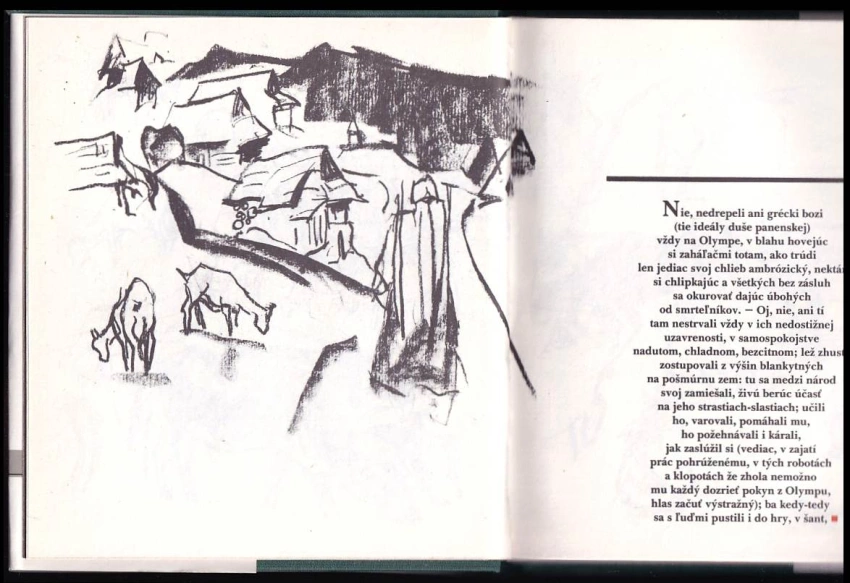 Nie, nedrepeli ani grécki bozi
(tie ideály duše panenskej)
vždy na Olympe, v blahu hovejúc
si zaháľačmi totam, ako trúdi
len jediac svoj chlieb ambrózický,
si chlipkajúc a všetkých bez zásluh
sa okurovať dajúc úbohých
od smrteľníkov. — Oj, nie, ani tí
tam nestrvali vždy v ich nedostižnej
uzavrenosti, v samospokojstve
nadutom, chladnom, bezcitnom; lež
zostupovali z výšin blankytných
na pošmúrnu zem: tu sa medzi národ
svoj zamiešali, živú berúc účasť
na jeho strastiach-slastiach; učili
ho, varovali, pomáhali mu,
ho požehnávali i kárali,
jak zaslúžil si (vediac, v zajatí
prác pohrúženému, v tých robotách
a klopotách že zhola nemožno
mu každý dozrieť pokyn z Olympu,
hlas začuť výstražný); ba kedy-tedy
sa s ľuďmi pustili i do hry, v šant,